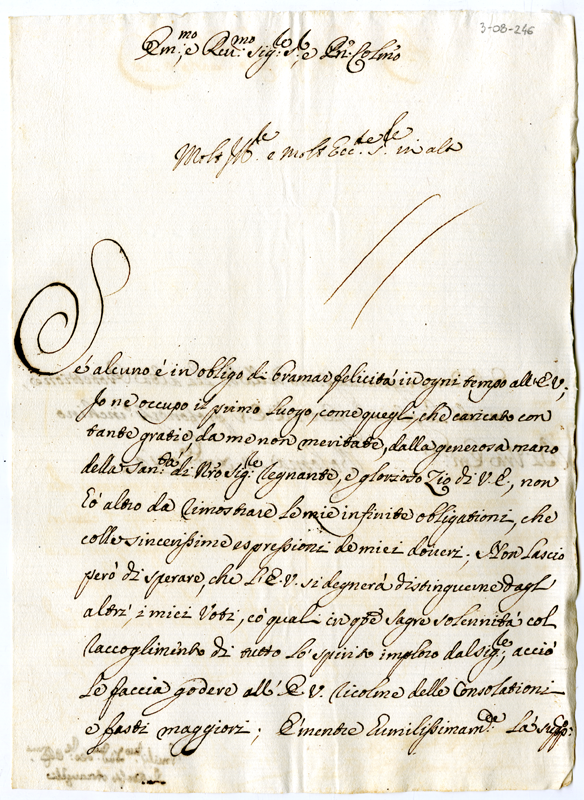 3-08-246
Em.mo e Reu.mo Sig.le S.le e Pñ Colmo
Molt Ill.le e Molt Ecc.te S.le in alt
Sé alcuno é in obligo di bramar felicitá in ogni tempo all' E V,
Jo ne occupo il primo luogo, come quegli, che caricato con
tante gratie da me non meritate, dalla generosa mano
della San.tà di N'ro Sig.le regnante, e glorioso Zio di V. E., non
hó altro da rimostrare le mie infinite obligationi, che
colle sincerissime espressioni de miei doueri; Non lascio
peró di sperare, che l' E. V. si degnerá distinguerne dagl'
altri i miei Voti, có quali in q̃te sagre solennitá col
raccoglimento di tutto ló spirito imploro dal sig.le, acció
le faccia godere all' E V. ricolme delle Consolationi
e fasti maggiori; E mentre humilissimam.te la supp.co: